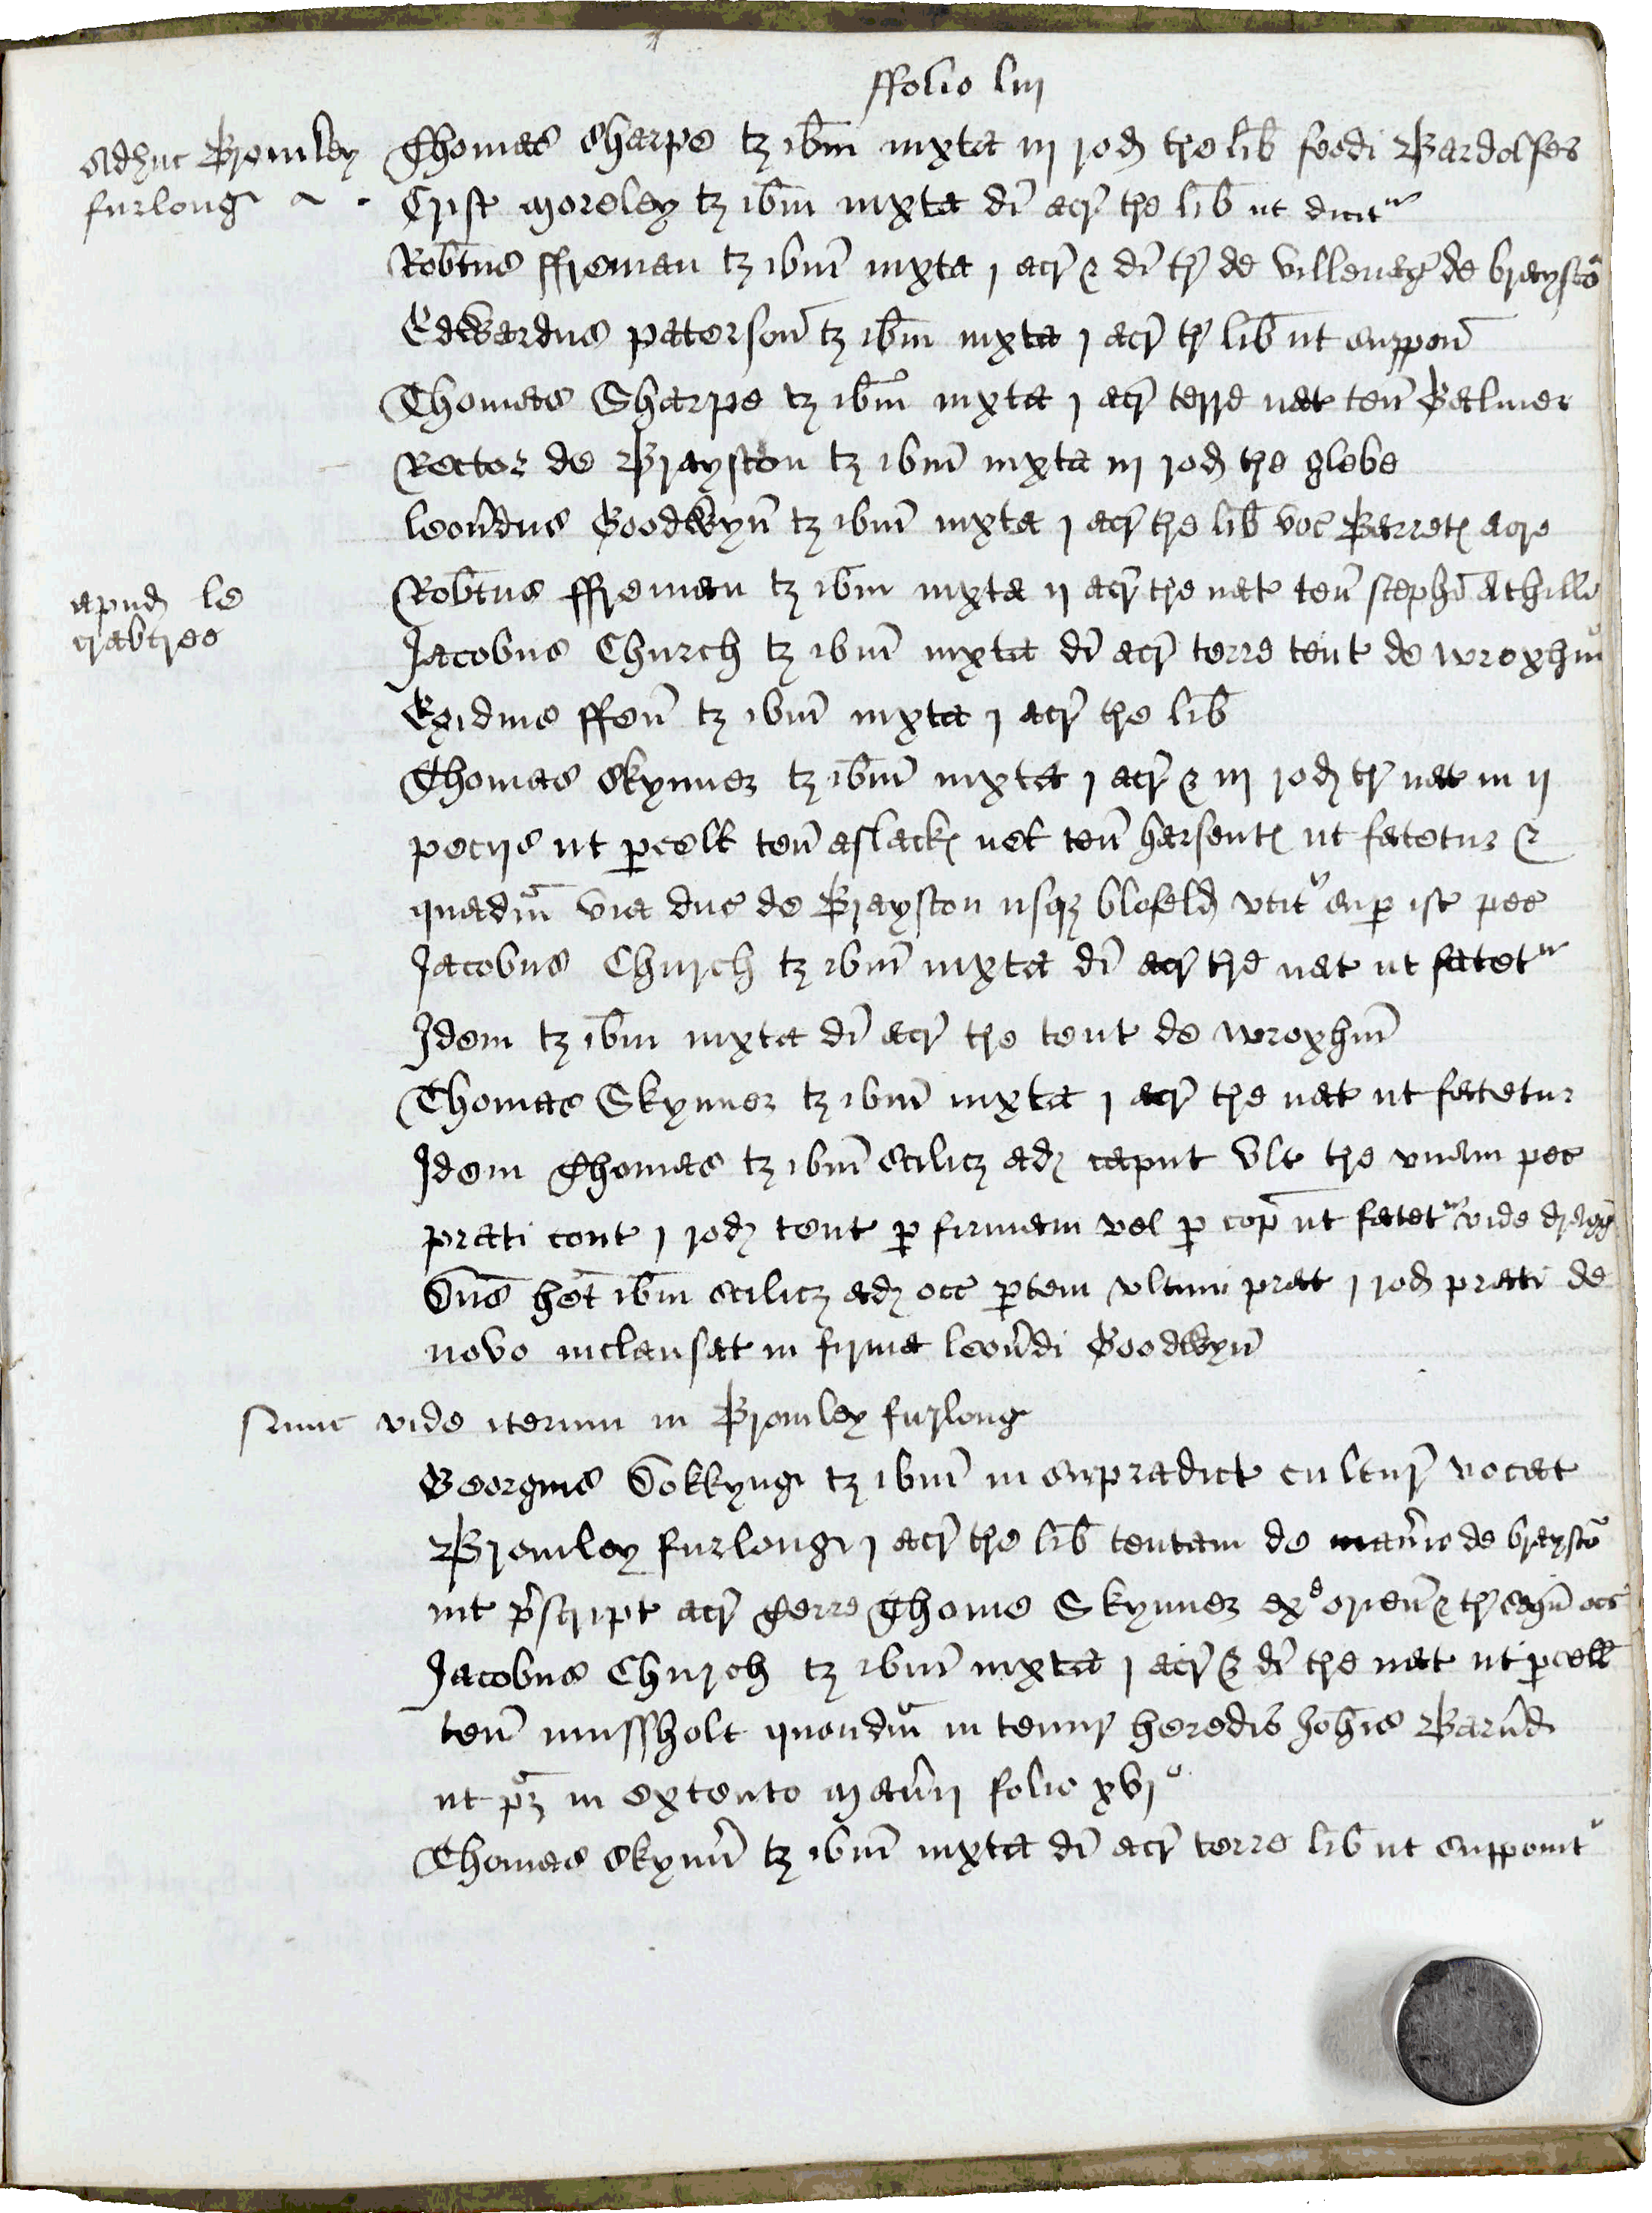 ffolio liij
Adhuc Bromley
furlong
Thomas Sharpe tz ibm iuxta iij rod tre lib feodi Bardolfes
Crist Moreley tz ibm iuxta di acr tre lib ut dicitur
Robtus ffreman tz ibm iuxta j acr & di tr de villenag de braysto
Edwardus paterson tz ibm iuxta j acr tr lib ut suppon
Thomas Sharpe tz ibm iuxta j acr terre nat ten Palmer
Rector de Brayston tz ibm iuxta iij rod tre glebe
leonrdus Goodwyn tz ibm iuxta j acr tre lib voc Barretes acre
apud le
crabtree
Robtus ffreman tz ibm iuxta ij acr tre nat ten stephi Athille
Jacobus Church tz ibm iuxta di acr terre tent de wroxhm
Egidius ffenn tz ibm iuxta j acr tre lib
Thomas Skynner tz ibm iuxta j acr & iij rod tr nat in ij
pecijs ut pcell ten aslackes vel ten harsentes ut fatetur &
quedm via duc de Brayston usqz blofeld utitr sup ist pec
Jacobus Church tz ibm iuxta di acr tre nat ut fatetur
Idem tz ibm iuxta di acr tre tent de wroxhm
Thomas Skynner tz ibm iuxta j acr tre nat ut fatetur
Idem Thomas tz ibm scilicz ad caput ult tre unam pec
prati cont j rod tent p firmam vel p cop ut fatetur vide
Dns het ibm scilicz ad occ ptem ultimi prat j rod prati de
novo inclausat in firma leonrdi Goodwyn
Nunc vide iterum in Bromley furlong
Georgius Dokkyng tz ibm in supradict cultur vocat
Bromley furlong j acr tre lib tentam de manrio de braysto
int prscript acr terre Thome Skynner ex orien & tr occ
Jacobus Church tz ibm iuxta j acr & di tre nat ut pcell
ten mussholt quondm in tenur heredis Johis Barnrdi
ut pz in extento manrij folio xvjo
Thomas Skynnr tz ibm iuxta di acr terre lib ut supponitr